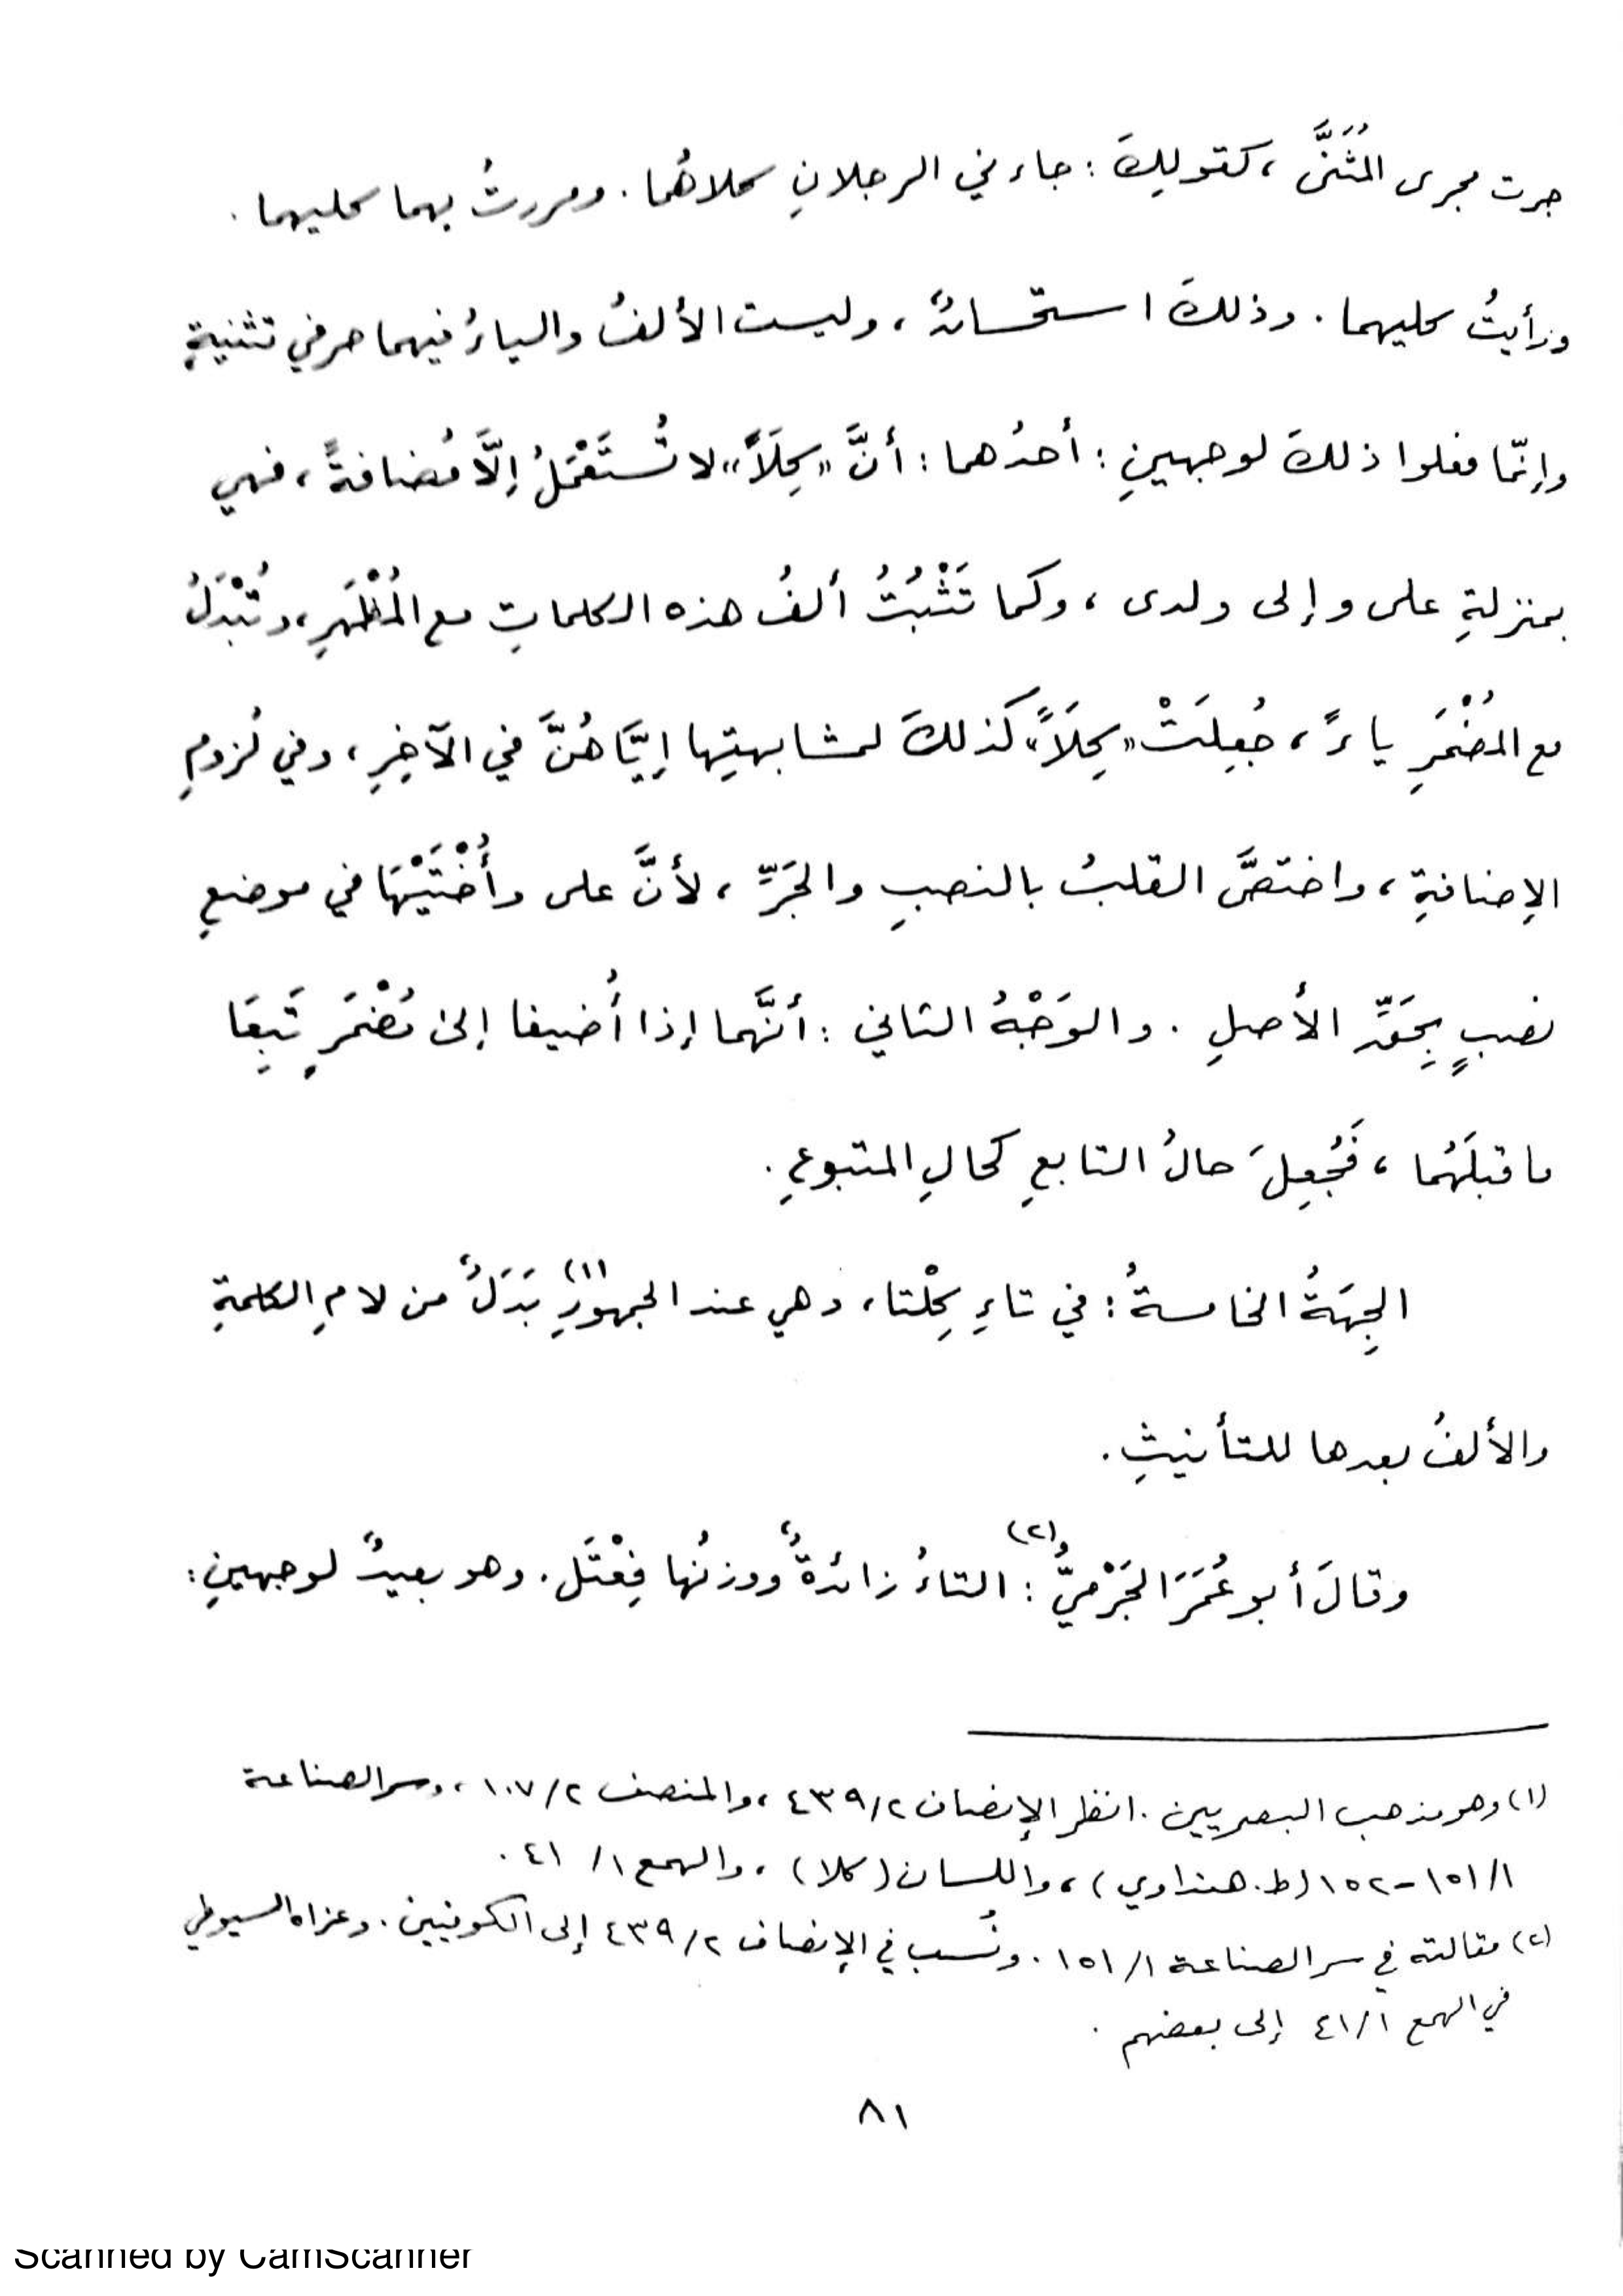 جرت مجرى المُثَنَّى ، كقولِكَ : جاءني الرجلانِ كلاهُما . ومررتُ بهما كليهما .
ورأيتُ كليهما . وذلكَ استحسانٌ ، وليست الألفُ والياءُ فيهما حرفي تثنيةٍ
وإنّما فعلوا ذلكَ لوجهينِ : أحدُهما : أنَّ «كِلَا» لا تُسْتَعْمَلُ إلَّا مُضافةً ، فهي
بمنزلةِ على وإلى ولدى ، وكما تَثْبُتُ ألفُ هذه الكلماتِ مع المُظْهَرِ ، وتُبْدَلُ
مع المُضْمَرِ ياءً ، جُعِلَتْ «كِلَا» كذلكَ لمشابهتِها إيَّاهُنَّ في الآخِرِ ، وفي لُزومِ
الإضافةِ ، واختصَّ القلبُ بالنصبِ والجَرِّ ، لأنَّ على وأُخْتَيْهَا في موضعِ
نصبٍ بِحَقِّ الأصلِ . والوَجْهُ الثاني : أنَّهما إذا أُضيفا إلى مُضْمَرٍ تَبِعَا
ما قبلَهُما ، فَجُعِلَ حالُ التابعِ كحالِ المتبوعِ .
الجِهَةُ الخامسةُ : في تاءِ كِلْتا ، وهي عند الجمهورِ (١) بَدَلٌ من لامِ الكلمةِ
والألفُ بعدها للتأنيثِ .
وقالَ أبو عُمَرَ الجَرْميُّ (٢) : التاءُ زائدةٌ ووزنُها فِعْتَل . وهو بعيدٌ لوجهينِ :
(١) وهو مذهب البصريين . انظر الإنصاف ٤٣٩/٢ ، والمنصف ١٠٧/٢ ، وسر الصناعة
١٥١/١-١٥٢ (ط . هنداوي) ، واللسان (كلا) ، والهمع ١/ ٤١ .
(٢) مقالته في سر الصناعة ١٥١/١ . ونُسب في الإنصاف ٤٣٩/٢ إلى الكوفيين . وعزاه السيوطي
في الهمع ٤١/١ إلى بعضهم .
٨١
Scanned by CamScanner